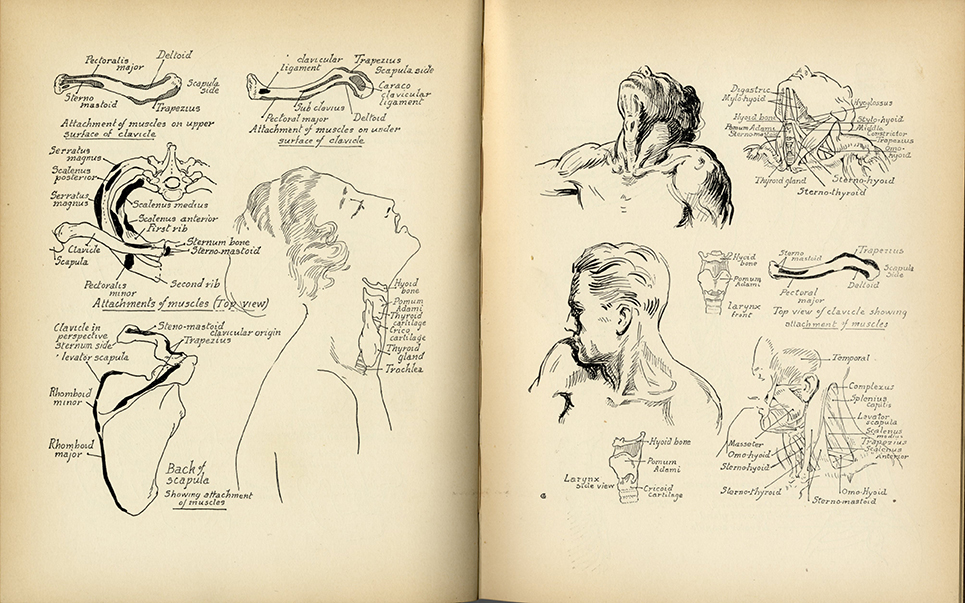 Pectoralis
major
Deltoid
Scapula
side
Sterno
mastoid
Trapezius
Attachment of muscles on upper
surface of clavicle
clavicular
ligament
Trapezius
Scapula side
Caraco
clavicular
ligament
Sub clavius
Deltoid
Pectoral major
Attachment of muscles on under
surface of clavicle
Serratus
magnus
Scalenus
posterior
Serratus
magnus
Scalenus medius
Scalenus anterior
First rib
Sternum bone
Sterno-mastoid
Clavicle
Scapula
Pectoralis
minor
Second rib
Attachments of muscles (Top view)
Clavicle in
perspective
Sternum side
Steno-mastoid
clavicular origin
Trapezius
levator scapula
Rhomboid
minor
Rhomboid
major
Back of
scapula
Showing attachment
of muscles
Hyoid
bone
Pomum
Adami
Thyroid
cartilage
Crico
cartilage
Thyroid
gland
Trochlea
Digastric
Mylo-hyoid
Hyoid bone
Pomum Adami
Sternomas
Hyoglossus
Stylo-hyoid
Middle
Constrictor
Trapezius
Omo-
hyoid
Thyroid gland
Sterno-hyoid
Sterno-thyroid
Hyoid
bone
Pomum
Adami
larynx
front
Sterno
mastoid
Trapezius
Scapula
Side
Deltoid
Pectoral
major
Top view of clavicle showing
attachment of muscles
Temporal
Complexus
Splenius
capitis
Levator
scapula
Scalenus
medius
Trapezius
Scalenus
Anterior
Masseter
Omo-hyoid
Sterno-hyoid
Sterno-thyroid
Omo-Hyoid
Sterno-mastoid
Hyoid bone
Pomum
Adami
Larynx
side view
Cricoid
cartilage